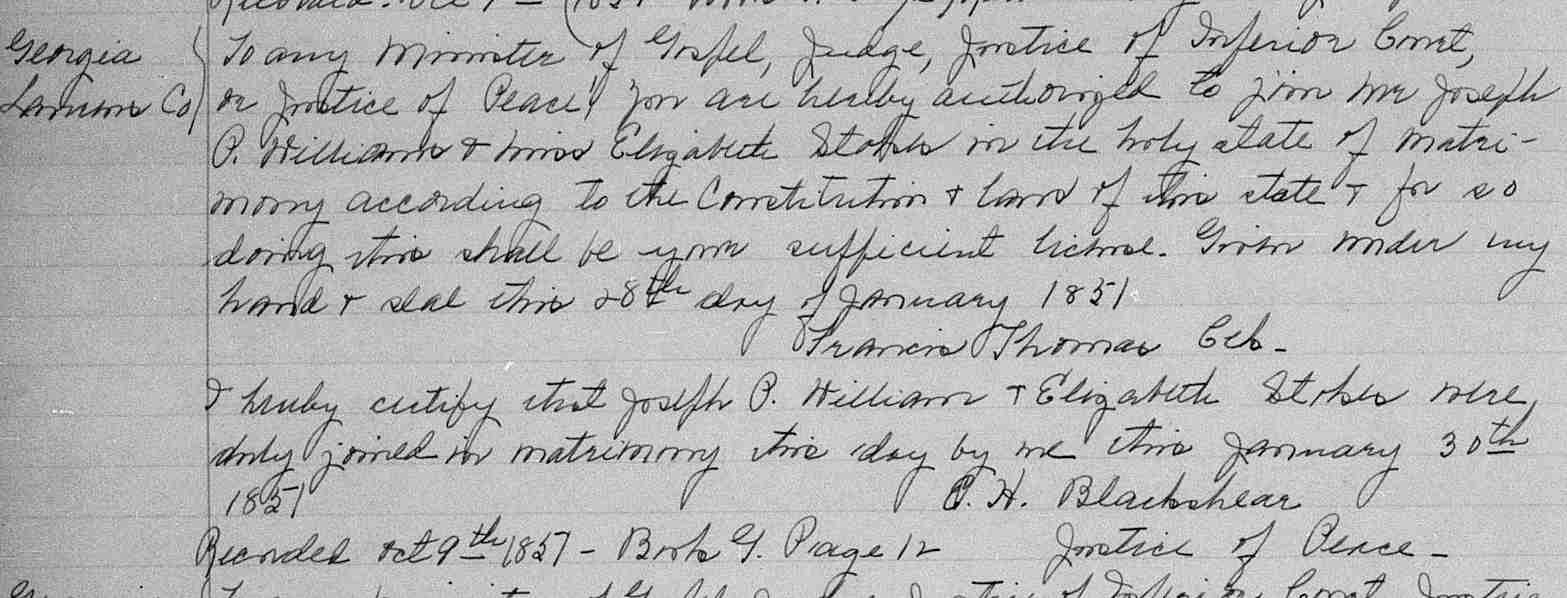 Recorded. Oct 9 – 1857 Book
Georgia
Laurens Co
To any Minister of Gospel, Judge, Justice of Inferior Court,
or Justice of Peace, You are hereby authorized to join Mr Joseph
P. Williams & Miss Elizabeth Stokes in the holy state of matri-
mony according to the Constitution & laws of this state & for so
doing this shall be your sufficient license. Given under my
hand & seal this 28th day of January 1851
Francis Thomas Ccb.
I hereby certify that Joseph P. William & Elizabeth Stokes were
duly joined in matrimony this day by me this January 30th
1851
E. H. Blackshear
Recorded Oct 9th 1857 – Book G. Page 12
Justice of Peace –